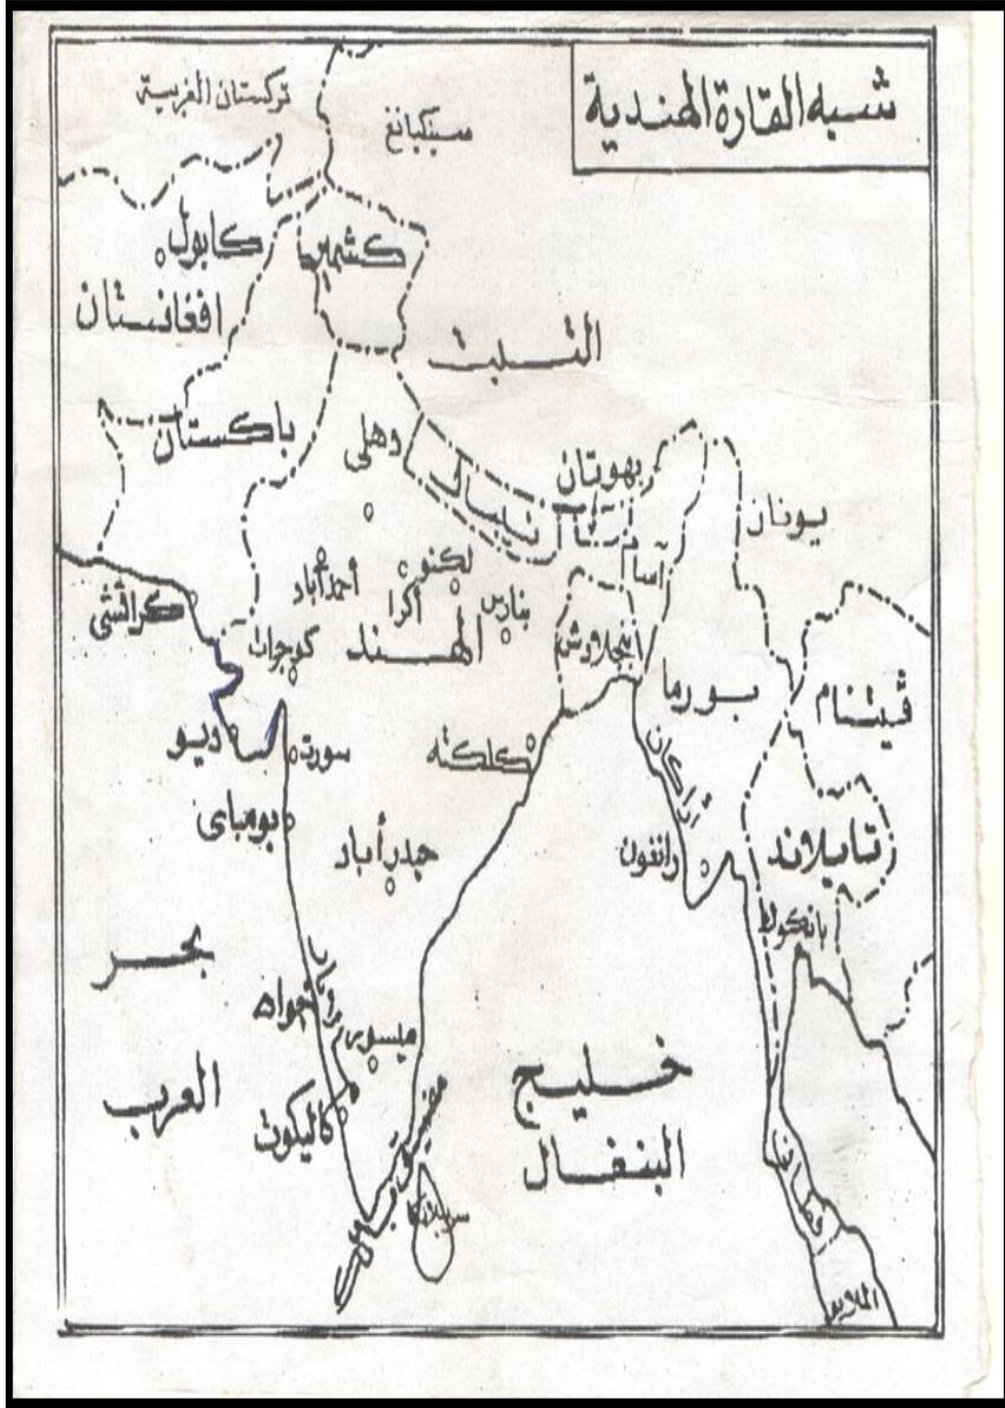 شبه القارة الهندية
تركستان الغربية
سينكيانغ
كابول
كشمير
افغانستان
التبت
باكستان
وهلي
نيبال
بهوتان
يونان
آسام
لكنو
أحمد أباد
أكرا
بنارس
كراتشي
كوجرات
الهند
بنجلاوش
بورما
ڤيتنام
ديو
سورت
كلكته
أراكان
بومباى
حيدر أباد
رانغون
تايلاند
بانكوك
بحر
العرب
جواه
ميسور
كاليكوت
خليج
البنغال
سريلانكا
الملايو